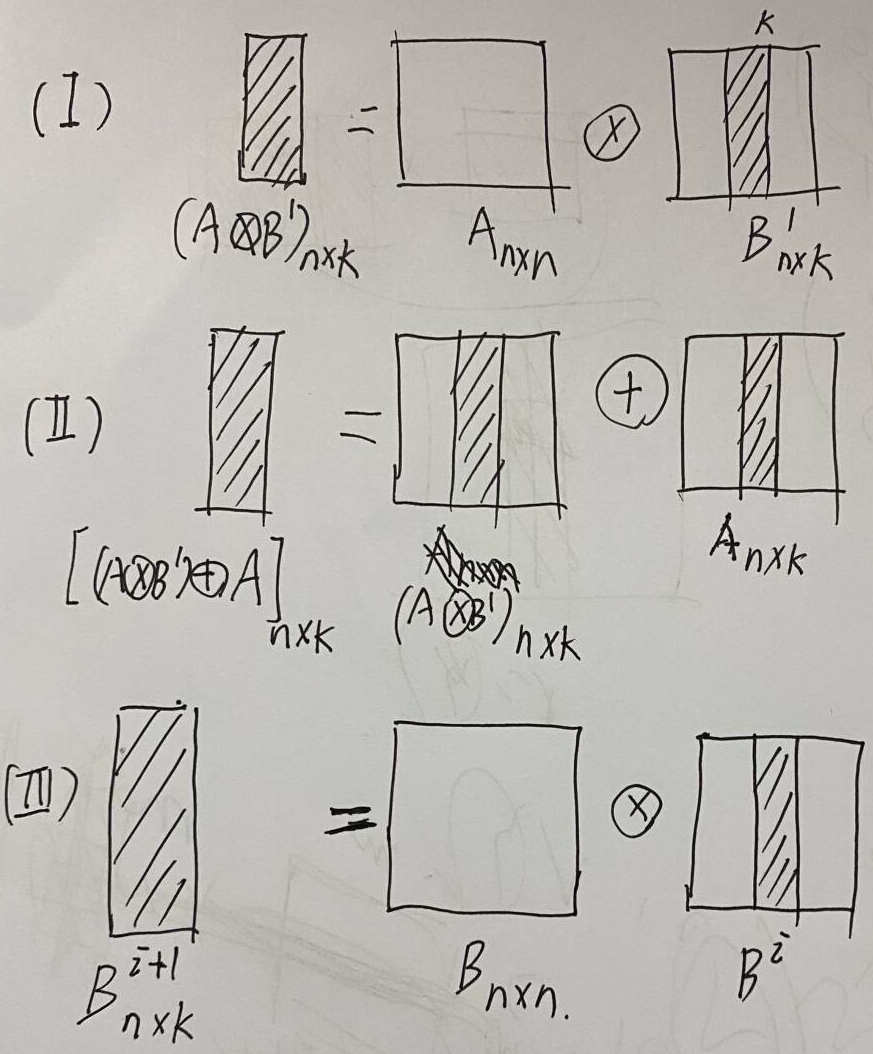 K
(I) = ⊗
(A⊗B')n×k A n×n B' n×k
(II) = ⊕
[(A⊗B')⊕A] n×k (A⊗B') n×k A n×k
(III) = ⊗
B^{i+1} n×k B n×n. B^i